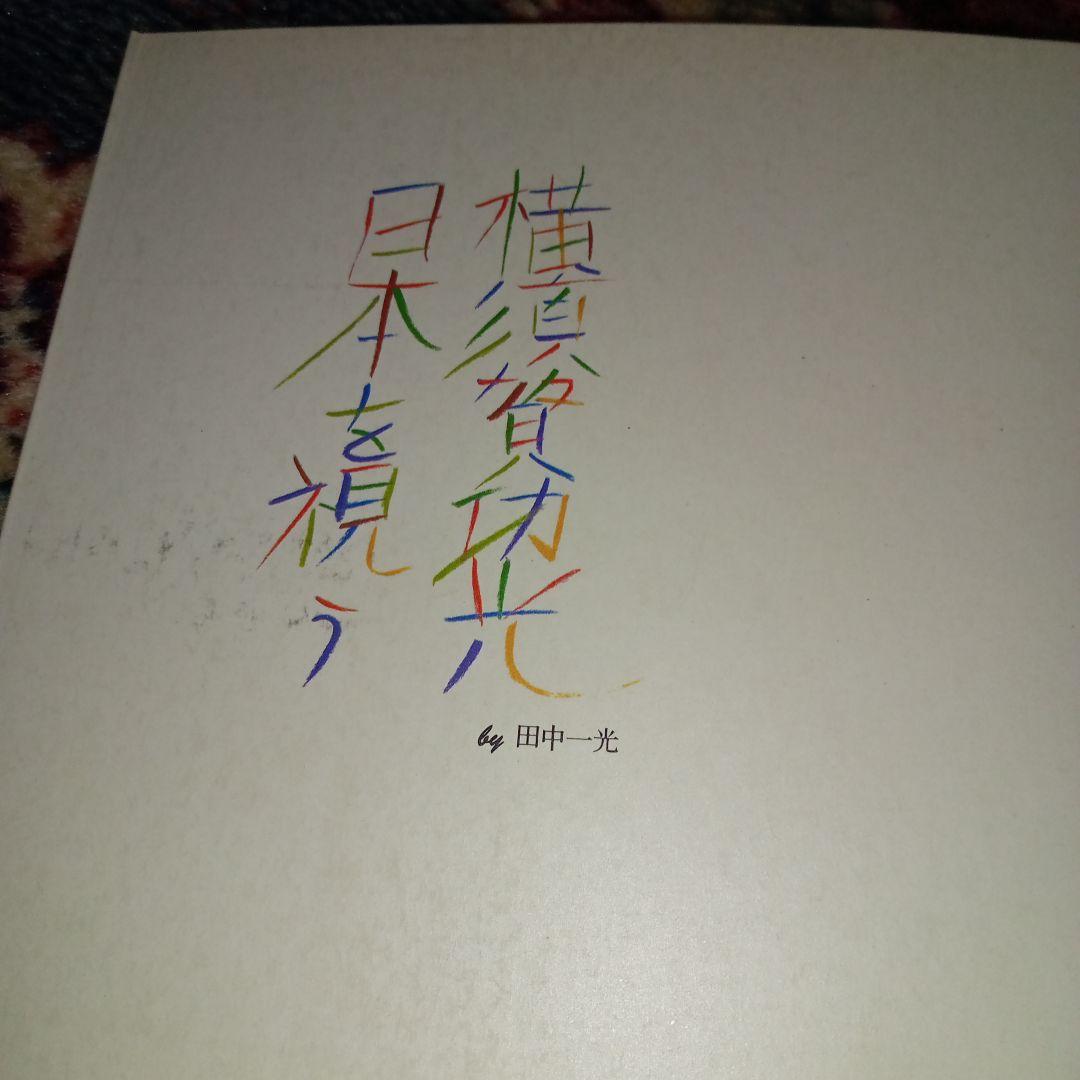 横須賀功光
日本を視う
by 田中一光